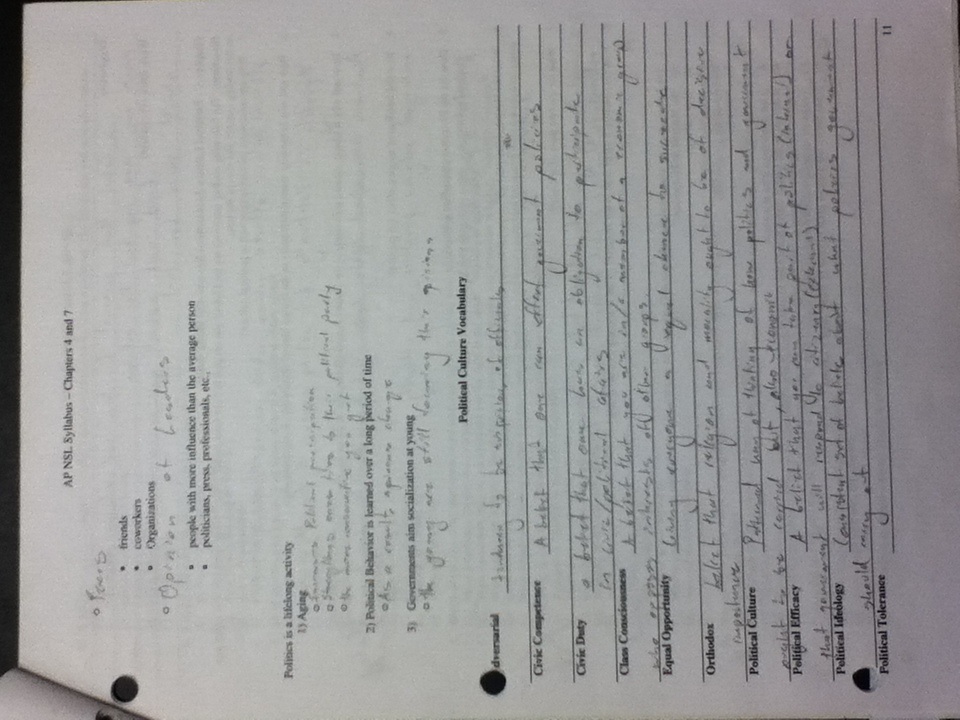 AP NSL Syllabus – Chapters 4 and 7
Peers
friends
coworkers
Organizations
Opinion of Leaders
people with more influence than the average person
politicians, press, professionals, etc.,
Politics is a lifelong activity
1) Aging
Increases Political participation
Strengthens ones ties to their political party
the more conservative you get
2) Political Behavior is learned over a long period of time
As a result, opinions change
3) Governments aim socialization at young
the young are still forming their opinions
Political Culture Vocabulary
dversarial tendency to be suspicious of officials
Civic Competence A belief that one can effect goverment policies
Civic Duty a belief that one has an obligation to participate
in civic/political affairs
Class Consciousness A belief that you are in/a member of a economic group
who opposes interests of other groups.
Equal Opportunity Giving everyone a equal chance to succeede
Orthodox belief that religion and morality ought to be of decisive
importance
Political Culture Patterned way of thinking of how politics and government
ought to be carried but, also economic
Political Efficacy A belief that you can take part of politics (internal) or
that government will respond to citizenry (external)
Political Ideology Consistent set of beliefs about what policies government
should carry out
Political Tolerance
11